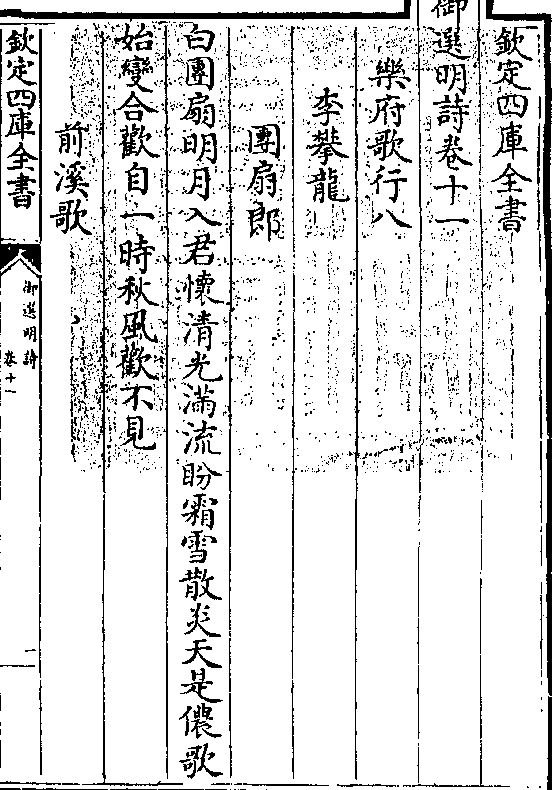 欽定四庫全書
御選明詩卷十一
樂府歌行八
李攀龍
團扇郎
白團扇明月入君懷清光滿流盼霜雪散炎天是儂歌
始變合歡自一時秋風歡不見
前溪歌
欽定四庫全書
御選明詩
卷十一
一